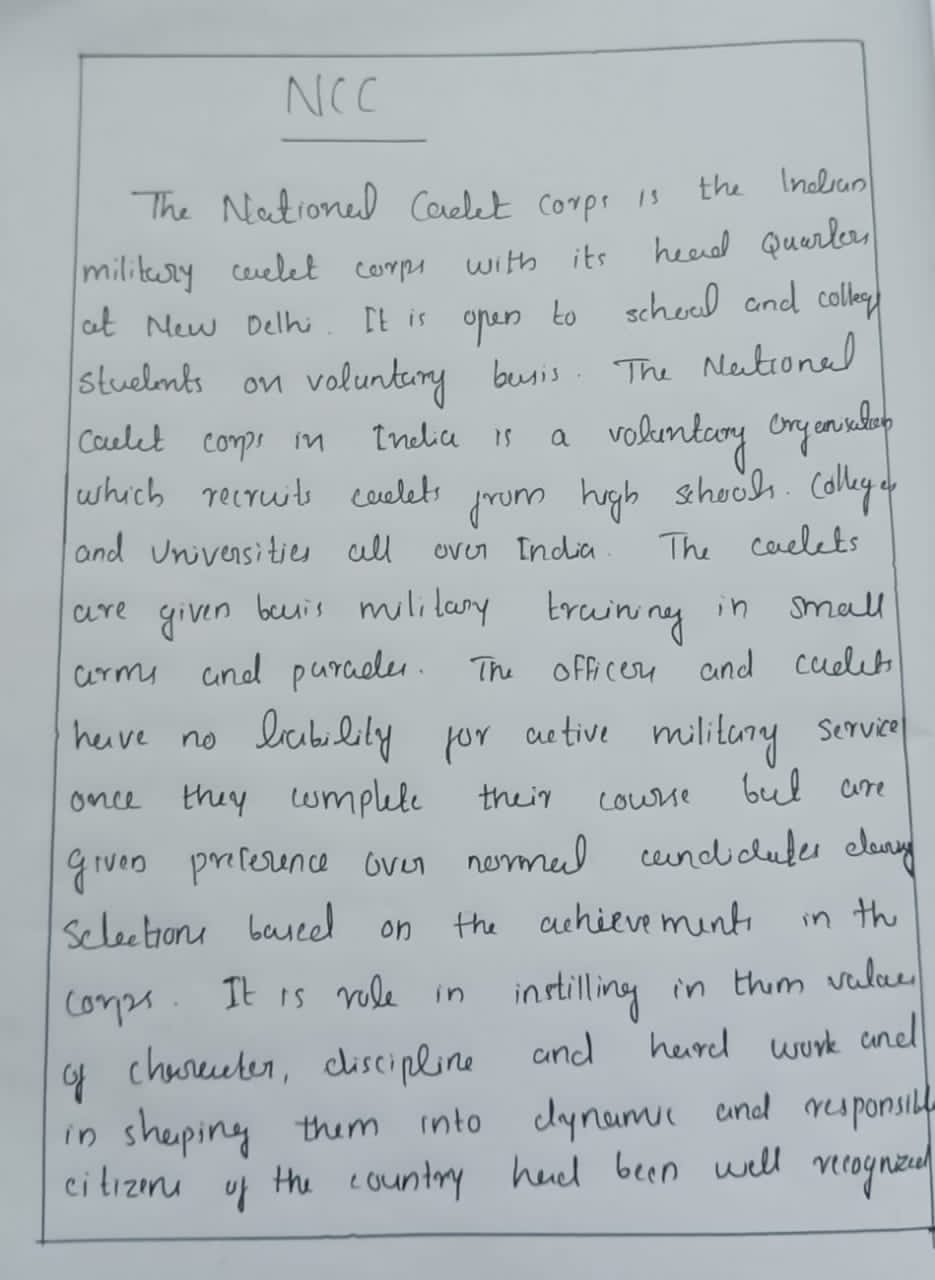 NCC
The National Cadet Corps is the Indian
military cadet corps with its head Quarters
at New Delhi. It is open to school and college
students on voluntary basis. The National
Cadet corps in India is a voluntary Organisation
which recruits cadets from high schools. Colleges
and Universities all over India. The cadets
are given basis military training in small
arms and parades. The officers and cadets
have no liability for active military service
once they complete their course but are
given preference over normal candidates during
Selections based on the achievements in th
corps. It is role in instilling in them values
of character, discipline and hard work and
in shaping them into dynamic and responsible
citizens of the country had been well recognized